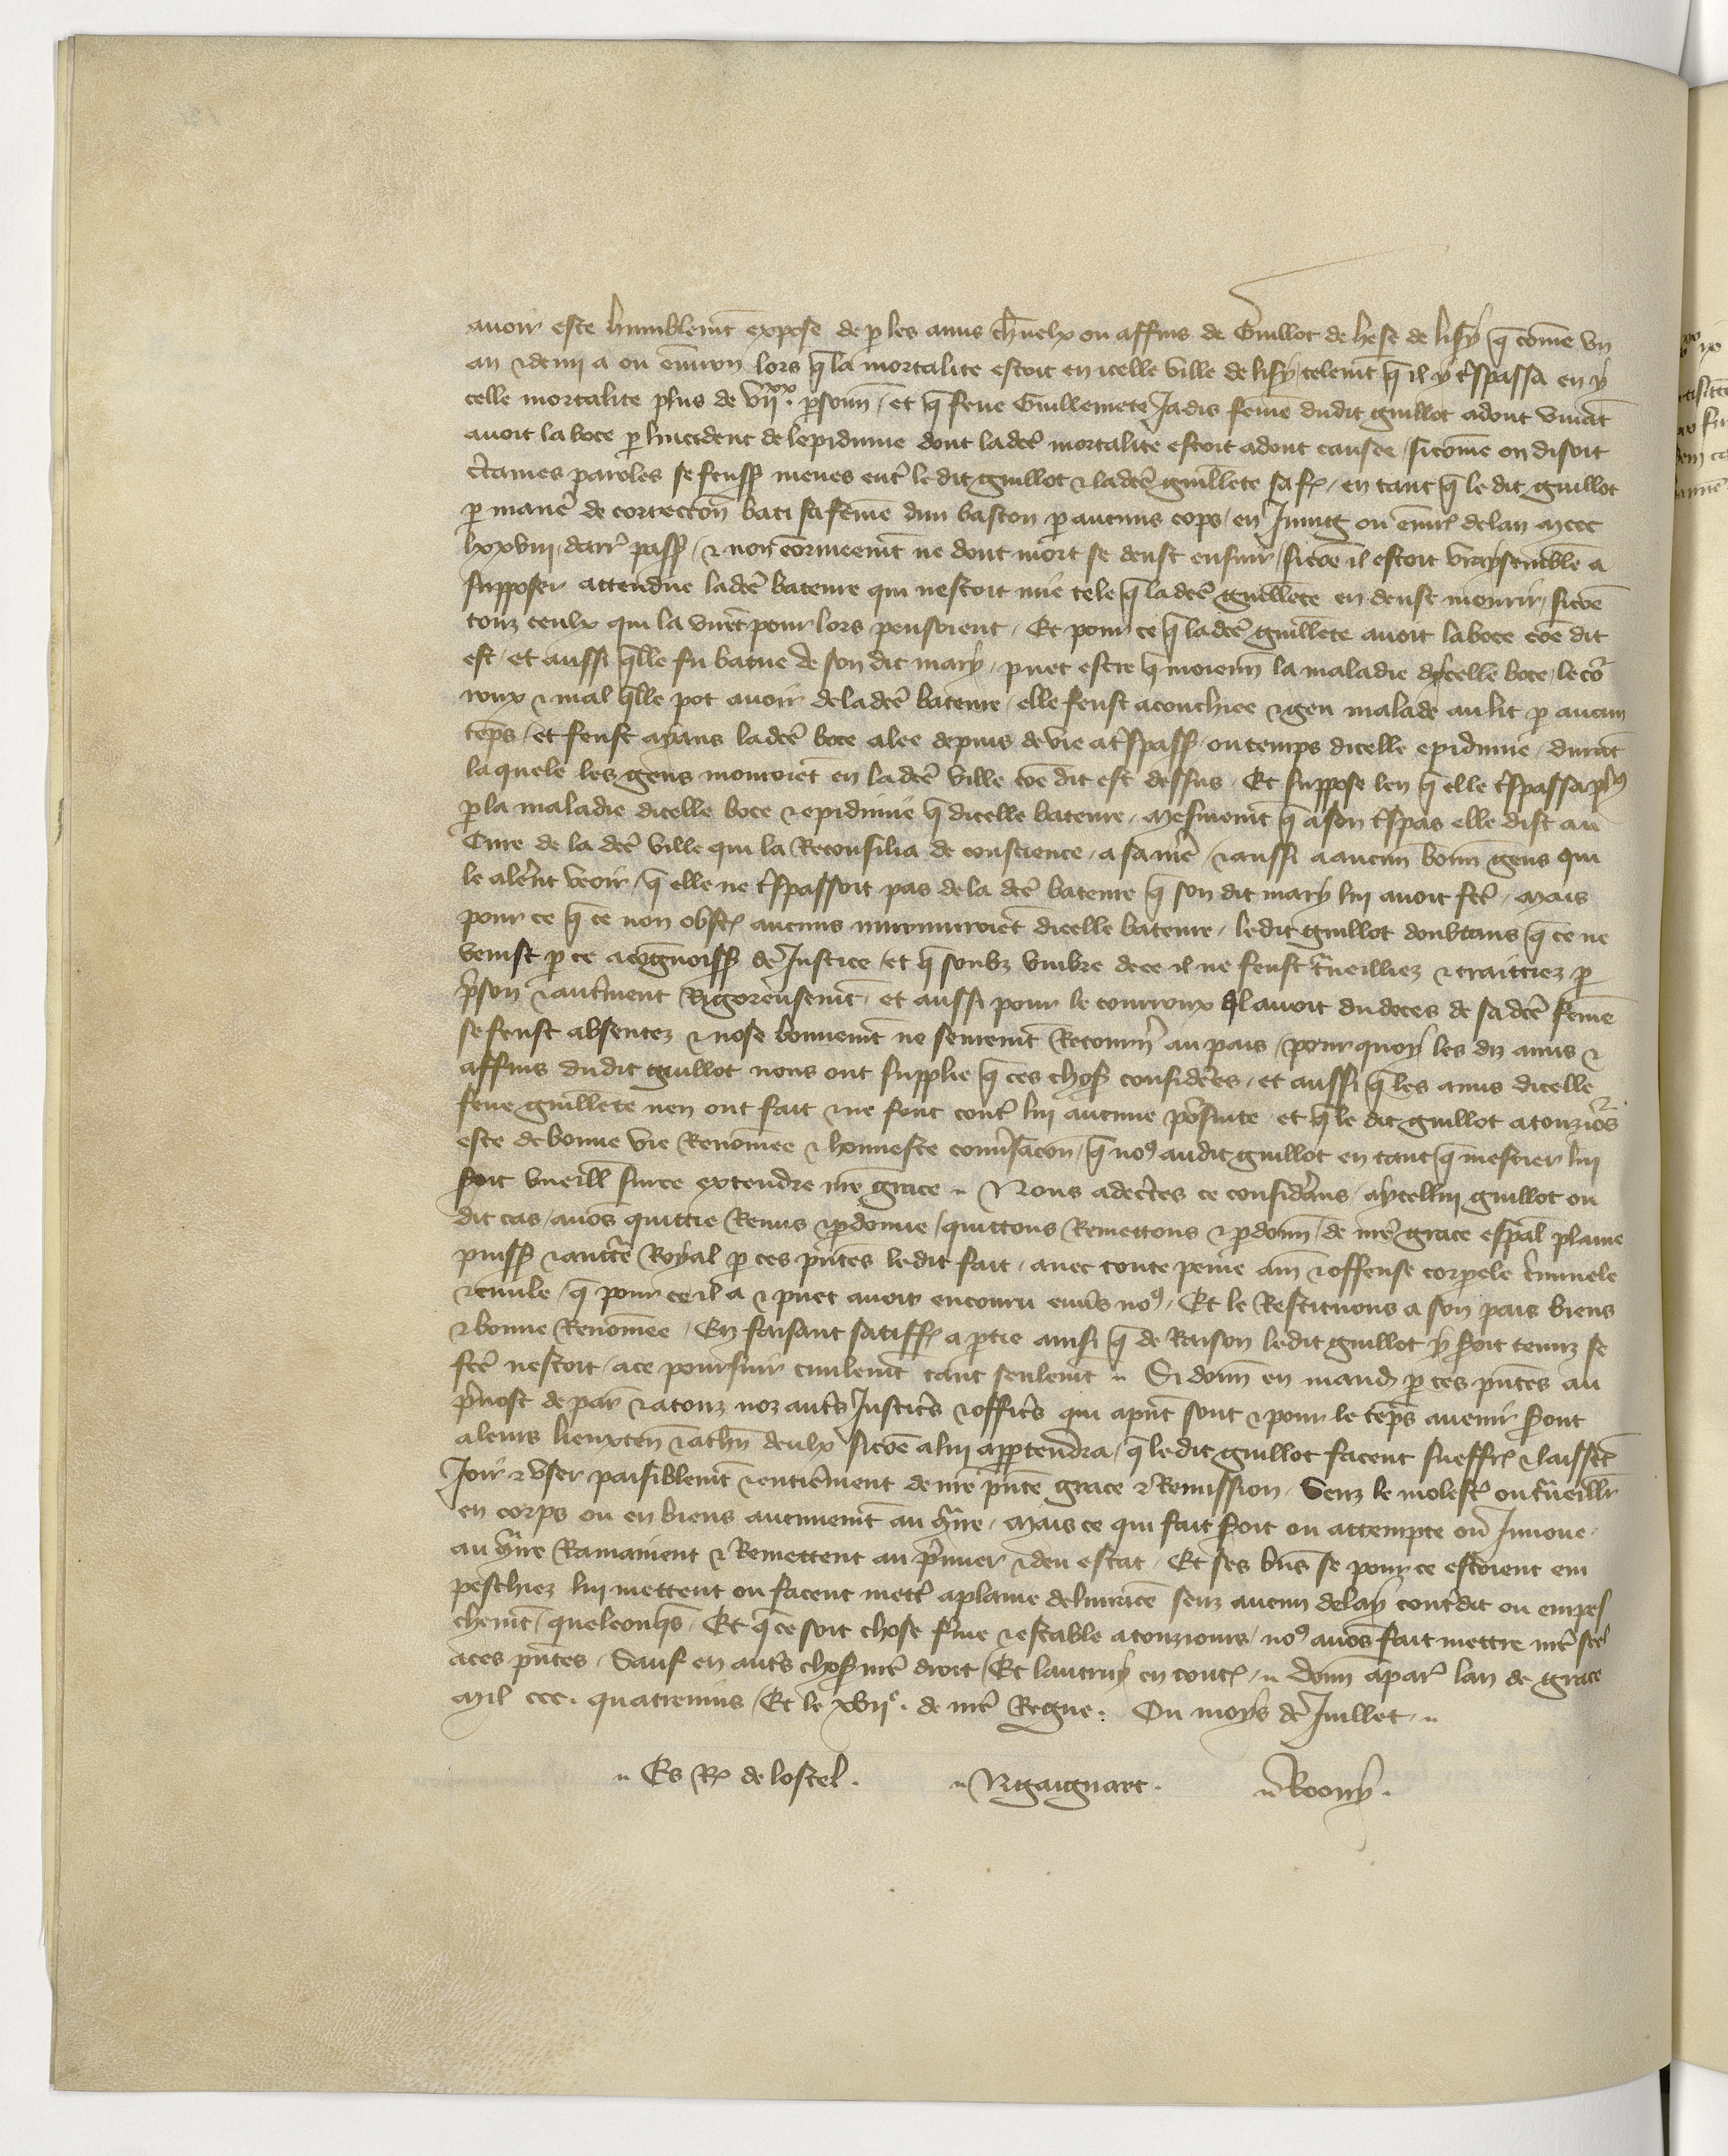 avoir este humblemēt expose de p les amis charnelx ou affins de Guillot de hese de lisy q̄ cōme vn
an ⁊ demi a ou environ lors q̄ la mortalite estoit en icelle ville de lisy telemēt q̄ il y t̄spassa en y
celle mortalite plus de vii.xx p̄sonn̄ / et q̄ feue Guillemete Jadis fēme dudit guillot adont vivāt
avoit la boce p lincident de lepidimie dont lad̄ce mortalite estoit adont causee / sicōme on disoit
c̄taines paroles se feuss̄ menes ent̄ le dit guillot ⁊ lad̄ce guill̄ete sa f̄ / en tant q̄ le dit guillot
p manīe de correcciōn bati sa fēme dun baston p aucuns cops / en Juing ou envir̄ de lan mccc
lxxviii / darr̄ pass̄ / ⁊ non eormeemēt ne dont mort se deust ensuir / sicōe il estoit vraysemblē a
supposer attendue lad̄ce bateure qui nestoit mie tele q̄ lad̄ce guill̄ete en deust mourir / sicōe
touz ceulx qui la virēt pour lors pensoient / Et pour ce q̄ lad̄ce guill̄ete avoit laboce cōe dit
est / et aussi q̄lle fu batue de son dit mary / puet estre q̄ moienn̄ la maladie dycelle boce / le cō
roux ⁊ mal q̄lle pot avoir de lad̄ce bateure / elle feust acouchiee ⁊ geu malade au lit p aucun
tēps / et feust ayans lad̄ce boce alee depuis de vie a t̄spass̄ / ou temps dicelle epidimie / durāt
laquele les gens mouroiēt en lad̄ce ville cōe dit est dessus / Et suppose len q̄ elle t̄spassa pl9
p la maladie dicelle boce ⁊ epidimie q̄ dicelle bateure / mesmemēt q̄ a son t̄spas elle dist au
Cure de la d̄ce ville qui la Reconsilia de conscience / a sa mīe / ⁊ aussi a aucun̄ bonn̄ gens qui
le alerēnt veoir / q̄ elle ne t̄spassoit pas de la d̄ce bateure q̄ son dit mary lui avoit f̄ce / Mais
pour ce q̄ ce non obst̄ aucuns murmuroiēt dicelle bateure / ledit guillot doubtans q̄ ce ne
venist p ce a cōgnoiss̄ de Justice / et q̄ soubz umbre de ce il ne feust t̄veilliez ⁊ traittiez p
p̄son ⁊ aut̄ment Rigoreusemēt / et aussi pour le courroux q̄l avoit du deces de sa d̄ce fēme
se feust absentez ⁊ nose bonnemēt ne seuremēt Retourn̄ au pais / pour quoy les diz amis ⁊
affins dudit guillot nous ont supplie q̄ ces chos̄ considerēes / et aussi q̄ les amis dicelle
feue guill̄ete nen ont fait ⁊ ne font cont̄ lui aucune p̄suite / et q̄ le dit guillot a touziōs
este de bonne vie Renōmee ⁊ honneste conv̄sacōn / q̄ no9 audit guillot en tant q̄ mestier lui
soit vueill̄ sur ce extendre nr̄e grace .. Nous adec̄tes ce considerāns / aycellui guillot ou
dit cas / avōs quittie Remis ⁊ p̄donne / quittons Remettons ⁊ p̄donn̄ / de nr̄e grace esp̄al plaine
puiss̄ ⁊ auct̄e Royal p ces p̄ntes ledit fait / avec toute peine am̄ ⁊ offense corporele c̄iminele
⁊ civile / q̄ pour ce il a ⁊ puet avoir encouru env̄s no9 / Et le Restituons a son pais biens
⁊ bonne Renōmee / En faisant satiff̄ a ptie ainsi q̄ de Raison ledit guillot y soit tenuz se
f̄ce nestoit / a ce poursuir civilemēt tant seulemēt .. Si donn̄ en mand̄ p ces p̄ntes au
p̄vost de par̄ ⁊ a touz noz aut̄s Justic̄s ⁊ offic̄s qui ap̄nt sont ⁊ pour le tēps avenir sont
a leurs lieuxten̄ ⁊ a ch̄n deulx sicōe a lui appartendra / q̄ le dit guillot facent sueffr̄ ⁊ laissēt
Joir ⁊ user paisiblemēt ⁊ entieīrment de nr̄e p̄nte grace ⁊ Remission / Senz le molest̄ ou t̄veill̄r
en corps ou en biens aucunemēt au ɔ̄tire / Mais ce qui fait soit ou attempte ou Innove /
au ɔ̄tire Ramainent ⁊ Remettent au p̄mier ⁊ deu estat / Et ses biēs se pour ce estoient em
peschiez lui mettent ou facent mett̄ a plaine delivrāce senz aucun delay cont̄dit ou empes
chemēt / quelconq̄s / Et q̄ ce soit chose f̄me ⁊ estable a touziours / no9 avōs fait mettre nr̄e scel
a ces p̄ntes / Sauf en aut̄s chos̄ nr̄e droit / Et lautruy en tout̄ / .. donn̄ a par̄ lan de grace
Mil ccc. quatrevins / Et le xvii^e. de nr̄e Regne. Ou moys de Juillet ..
.. Es R̄ de lostel. .. N gaignart. .. Roony.